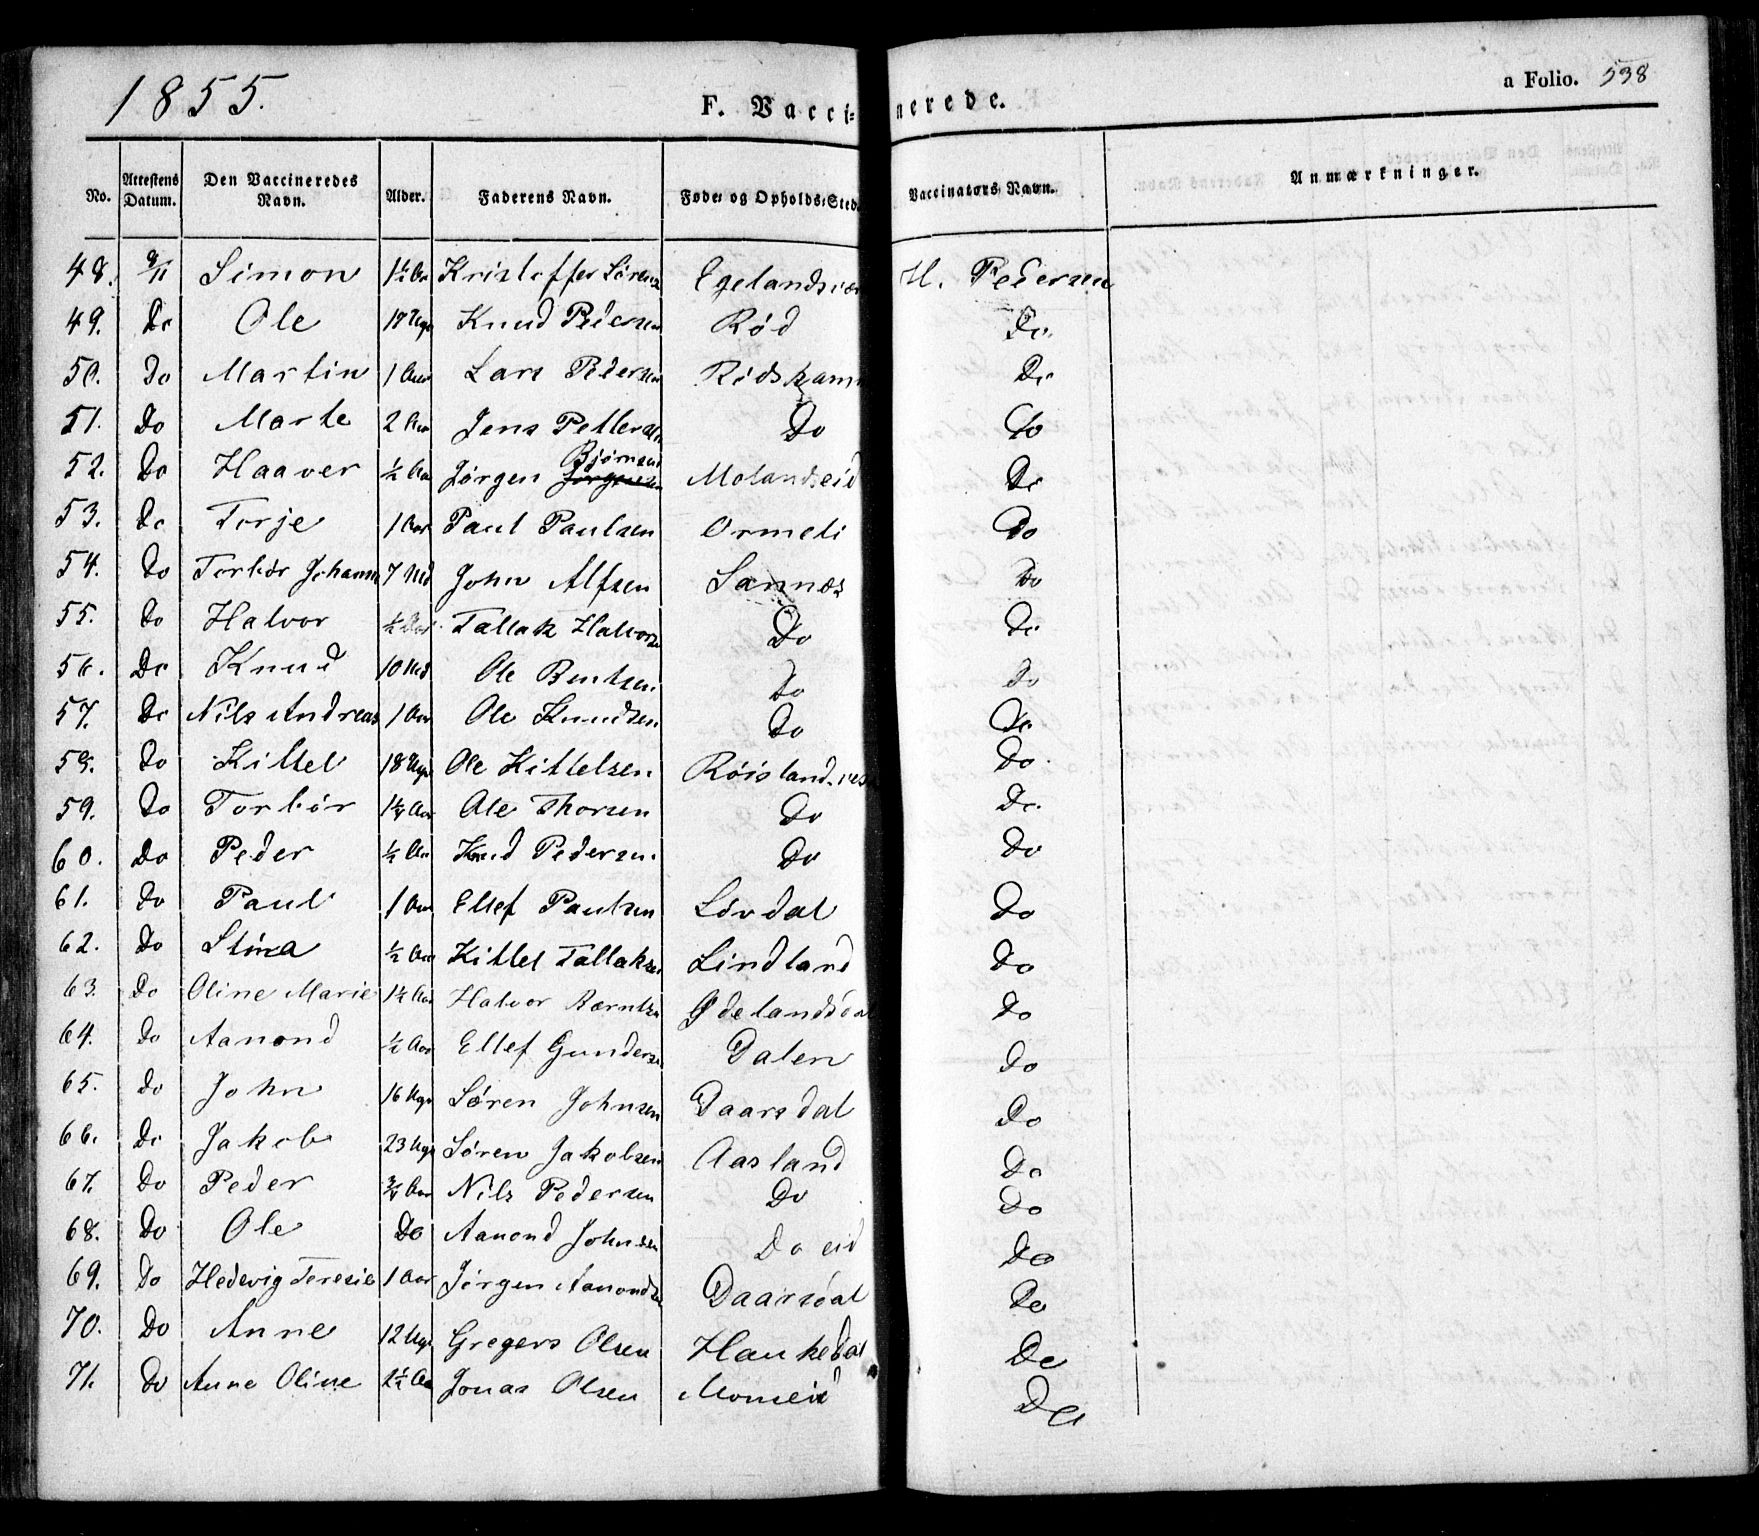 1855. F. Vaccinerede. a Folio. 538
No. Attestens Datum. Den Vaccineredes Navn. Alder. Faderens Navn. Føde- og Opholds-Sted. Vaccinators Navn. Anmærkninger.
48. 9/11 Simon 1½ Aar Kristoffer Sørens Egelands H. Pedersen
49. Do Ole 17 Uger Knud Pedersen Rød Do.
50. Do Martin 1 Aar Lars Pedersen Do
51. Do Marte 2 Aar Jens Pettersen Do Do
52. Do Haaver ½ Aar Jørgen Jørgensen Bjørnsen Molandseid Do
53. Do Terje 1 Aar Paul Paulsen Ormeli Do
54. Do Torbør Johanne 7 Md John Alfsen Sannes Do
55. Do Halvor ½ Aar Tallak Halvors Do Do
56. Do Knud 10 Md Ole Bentsen Do Do
57. Do Nils Andreas 1 Aar Ole Knudsen Do Do
58. Do Kittel 18 Uger Ole Kittelsen Røisland Do
59. Do Torbør 1¼ Aar Ole Thorsen Do Do.
60. Do Peder ½ Aar Knud Pedersen Do Do
61. Do Paul 1 Aar Ellef Paulsen Løvdal Do
62. Do Stina ½ Aar Kittel Tallaksen Lindland Do
63. Do Oline Marie 1½ Aar Halvor Berntsen Ødelandsdal Do
64. Do Aanond ½ Aar Ellef Gunders Dalen Do
65. Do John 16 Uger Søren Johnsen Daarsdal Do
66. Do Jakob 23 Uger Søren Jakobsen Aasland Do
67. Do Peder ¾ Aar Nils Pedersen Do Do
68. Do Ole Do Aanond Johnsen Do eid Do
69. Do Hedevig Teresie 1 Aar Jørgen Aanonds Daarsdal Do
70. Do Anne 12 Uger Gregers Olsen Haukedal Do
71. Do Anne Oline 2½ Aar Jonas Olsen Momeid Do